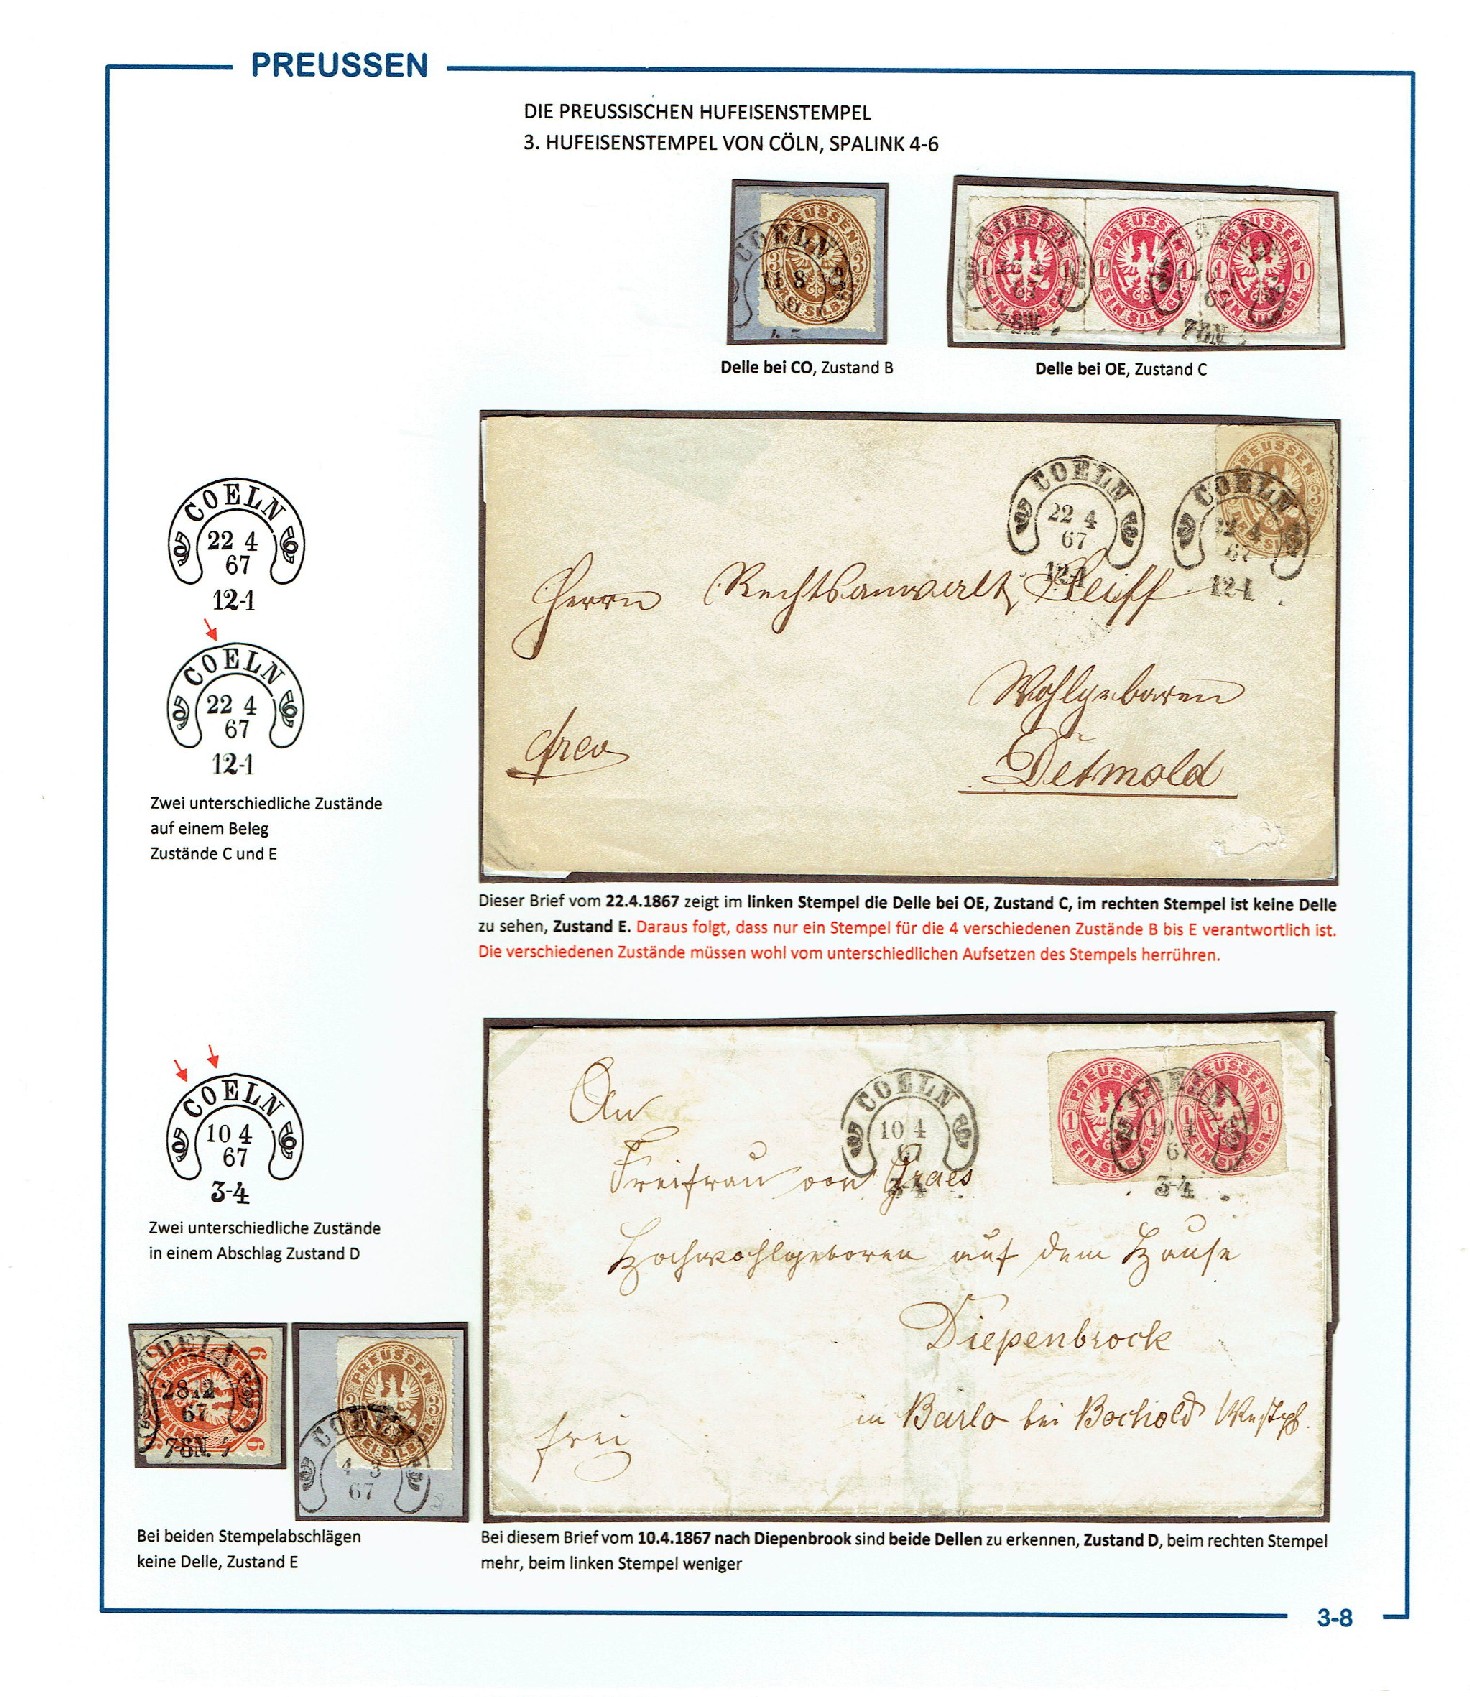 PREUSSEN
DIE PREUSSISCHEN HUFEISENSTEMPEL
3. HUFEISENSTEMPEL VON CÖLN, SPALINK 4-6
PREUSSEN
COELN
11 8
3 3
PREUSSEN PREUSSEN PREUSSEN
COELN
1 1 1 1
67
78N
78N
Delle bei CO, Zustand B
Delle bei OE, Zustand C
COELN
22 4
67
12-1
COELN
22 4
67
12-1
Zwei unterschiedliche Zustände
auf einem Beleg
Zustände C und E
PREUSSEN
COELN COELN
22 4 22 4
67 67
12-1 12-1
Herrn Rechtsanwalt
Wohlgeboren
freo
Detmold
Dieser Brief vom 22.4.1867 zeigt im linken Stempel die Delle bei OE, Zustand C, im rechten Stempel ist keine Delle
zu sehen, Zustand E. Daraus folgt, dass nur ein Stempel für die 4 verschiedenen Zustände B bis E verantwortlich ist.
Die verschiedenen Zustände müssen wohl vom unterschiedlichen Aufsetzen des Stempels herrühren.
COELN
10 4
67
3-4
Zwei unterschiedliche Zustände
in einem Abschlag Zustand D
PREUSSEN PREUSSEN
COELN COELN
10 4 10 4
67 67
3-4 3-4
An
Freifrau von Graes
Hochwohlgeboren auf dem Hause
Diepenbrock
in Barlo bei Bocholt Westph.
frei
COELN
28 12
67
78N.
6
6
PREUSSEN
COELN
4 3
67
Bei beiden Stempelabschlägen
keine Delle, Zustand E
Bei diesem Brief vom 10.4.1867 nach Diepenbrook sind beide Dellen zu erkennen, Zustand D, beim rechten Stempel
mehr, beim linken Stempel weniger
3-8